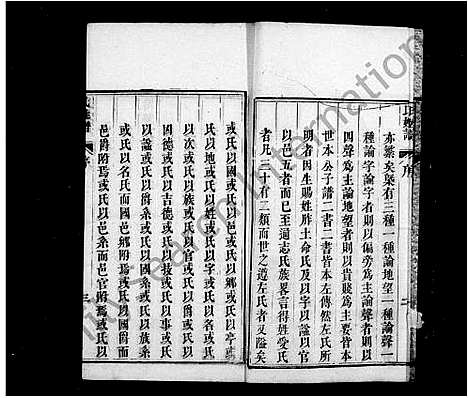 氏族譜
序
二
亦繁矣槩有三種一種論地望一種論聲一
種論字論字者則以偏旁為主論聲者則以
四聲為主論地望者則以貴賤為主要皆本
世本公子譜二書二書皆本左傳然左氏所
明者因生賜姓胙土命氏及以字以諡以官
以邑五者而已至通志氏族畧言得姓受氏
者凡三十有二類而世之遵左氏者又隘矣
或氏以國或氏以邑或氏以鄉或氏以亭或
氏以地或氏以姓或氏以字或氏以名或氏
以次或氏以族或氏以官或氏以爵或氏以
因德或氏以吉德或氏以技或氏以事或氏
以諡或氏以爵系或氏以國系或氏以族系
或氏以名氏而國邑鄉附焉或氏以國爵而
邑爵附焉或氏以邑系而邑官附焉或氏以
族譜
序
三
FamilySearch International